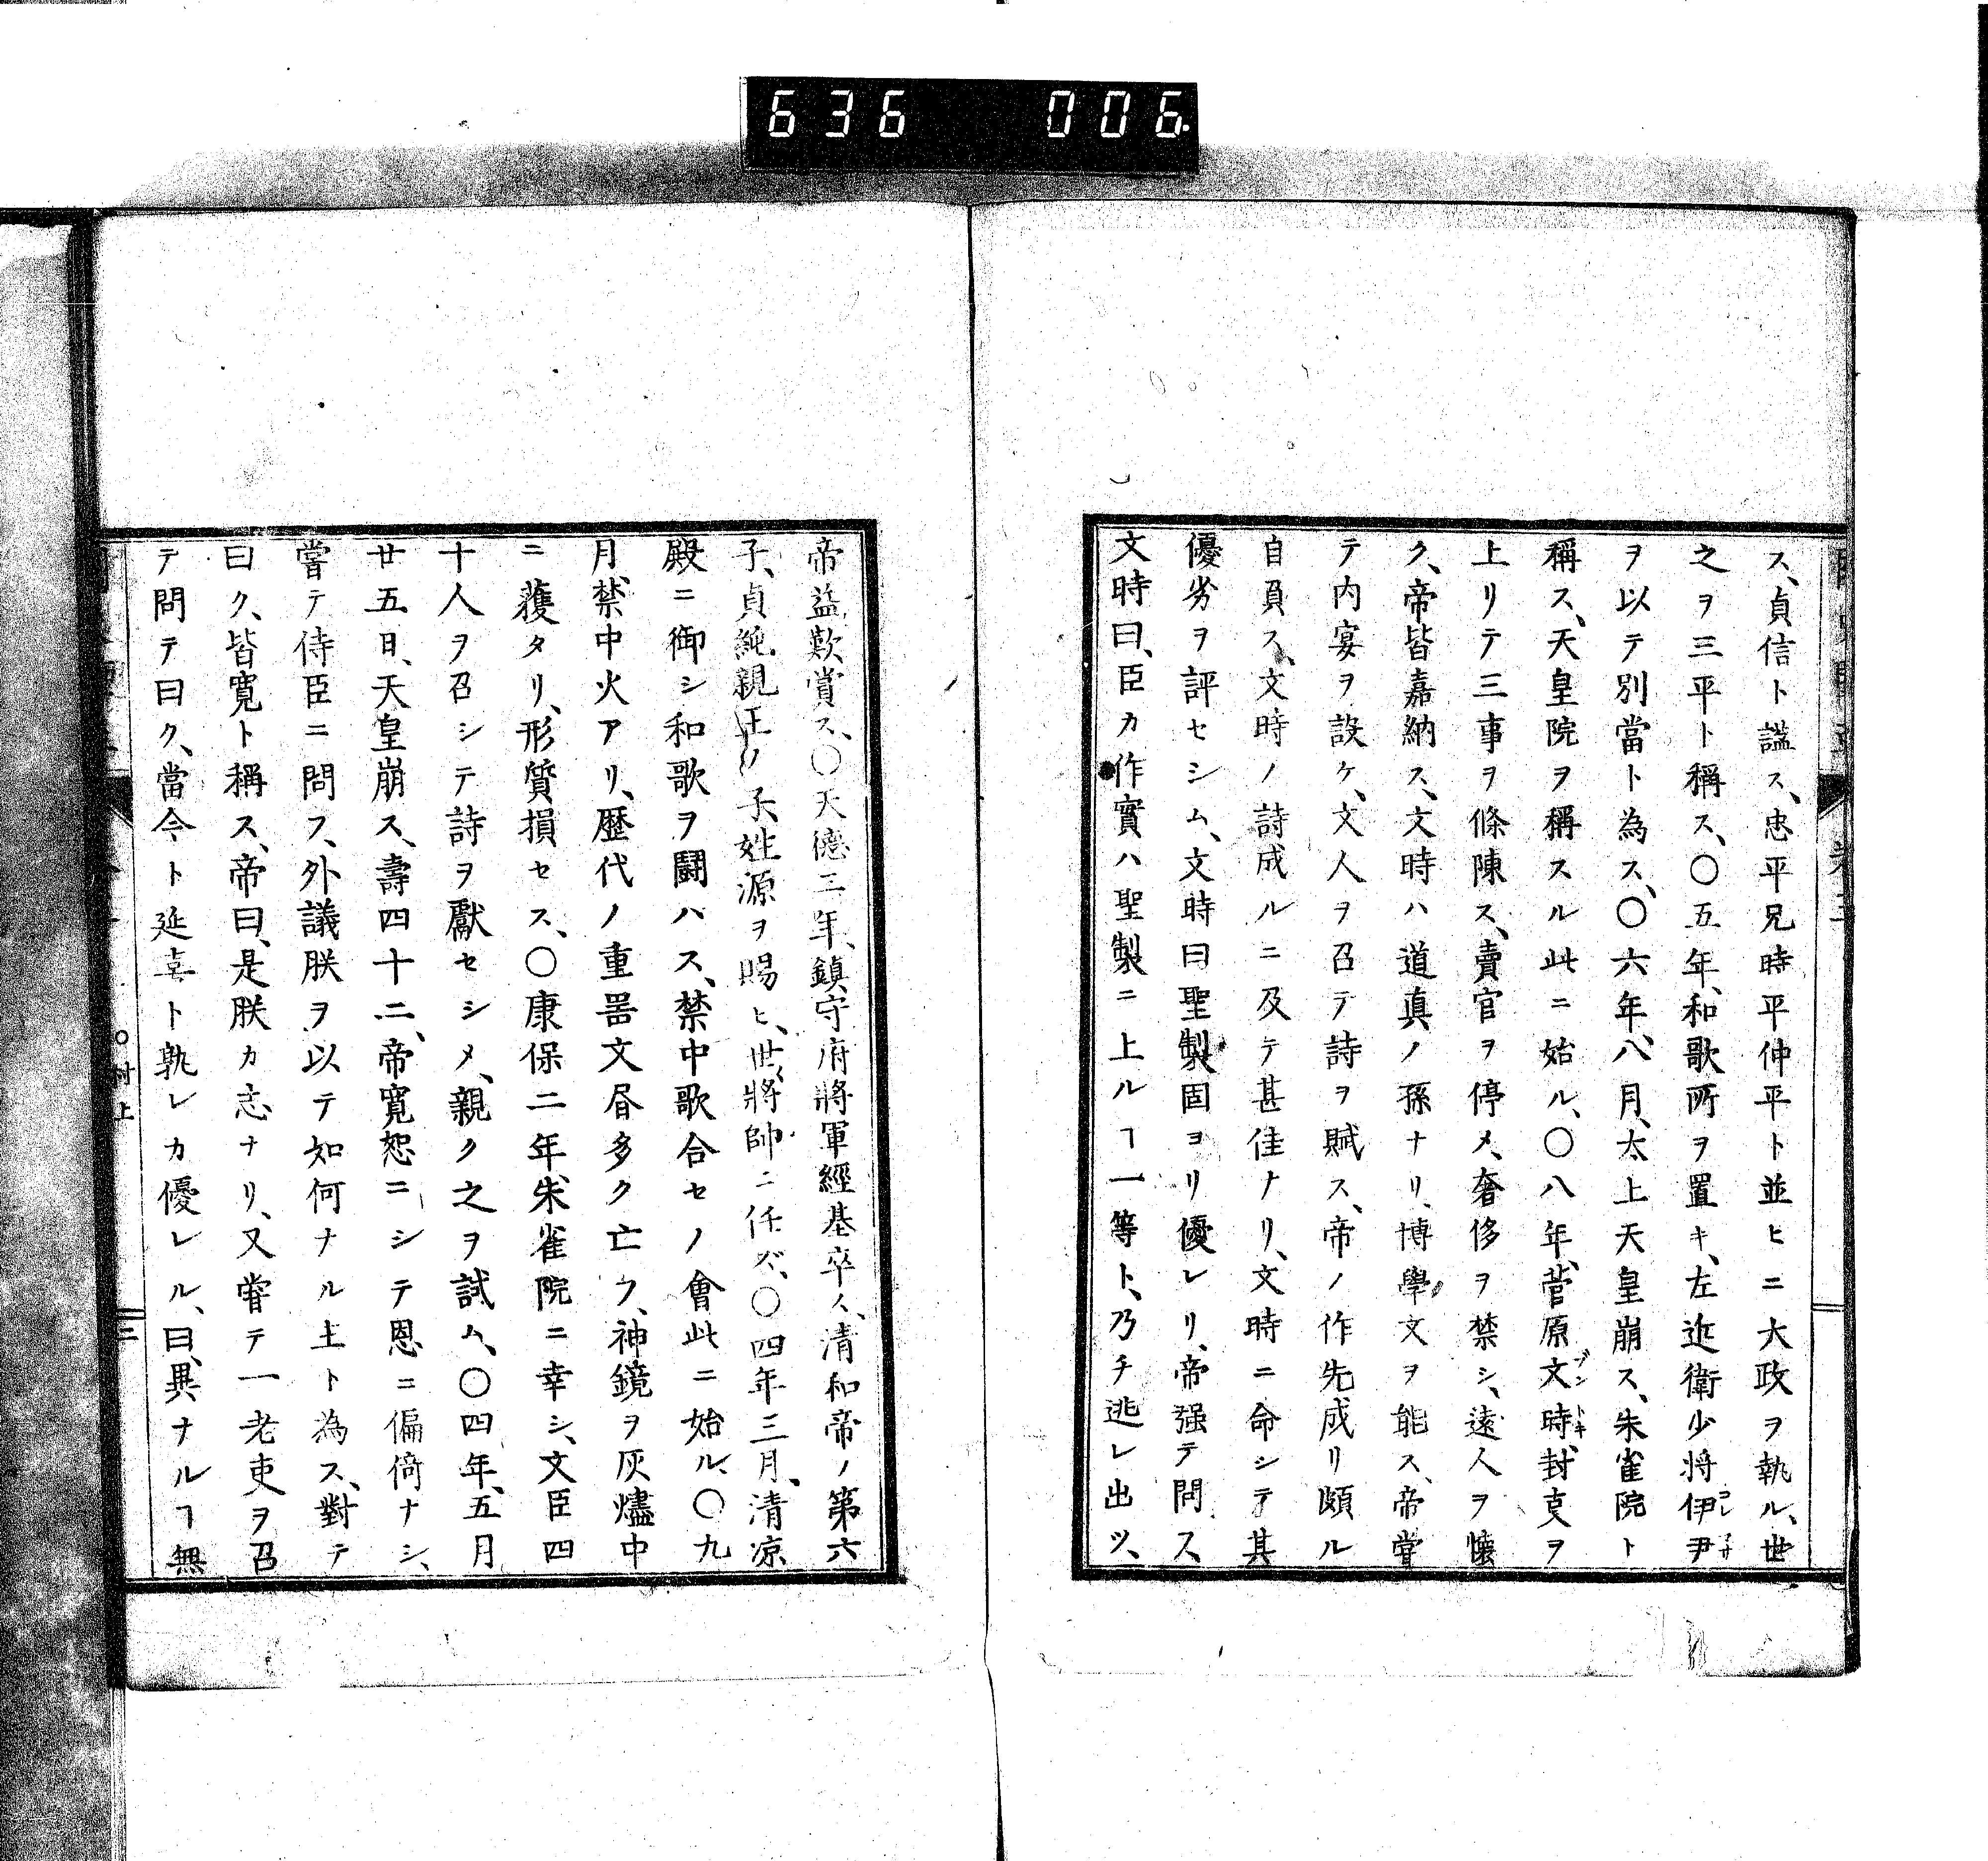 636 006
ス、貞信ト謚ス、忠平兄時平仲平ト並ヒニ大政ヲ執ル、世
之ヲ三平ト稱ス、〇五年、和歌所ヲ置キ、左近衛少将伊尹
ヲ以テ別當ト為ス、〇六年、八月、太上天皇崩ス、朱雀院ト
稱ス、天皇院ヲ稱スル此ニ始ル、〇八年、菅原文時ブントキ、封㕝ヲ
上リテ三事ヲ條陳ス、賣官ヲ停メ、奢侈ヲ禁シ、遠人ヲ懐
ク、帝皆嘉納ス、文時ハ道真ノ孫ナリ、博學文ヲ能ス、帝甞
テ内宴ヲ設ケ、文人ヲ召テ詩ヲ賦ス、帝ノ作先成リ頗ル
自負ス、文時ノ詩成ルニ及テ甚佳ナリ、文時ニ命シテ其
優劣ヲ評セシム、文時曰聖製固ヨリ優レリ、帝强テ問ス、
文時曰、臣カ作實ハ聖製ニ上ルヿ一等ト、乃チ逃レ出ツ、
帝益歎賞ス、〇天德三年、鎮守府將軍經基卒ス、清和帝ノ第六
子、貞純親王ノ子姓源ヲ賜ヒ、世〻將帥ニ任ズ、〇四年三月、清凉
殿ニ御シ和歌ヲ鬪ハス、禁中歌合セノ會此ニ始ル、〇九
月、禁中火アリ、歴代ノ重噐文昏多ク亡フ、神鏡ヲ灰燼中
ニ獲タリ、形質損セス、〇康保二年、朱雀院ニ幸シ、文臣四
十人ヲ召シテ詩ヲ獻セシメ、親ク之ヲ試ム、〇四年、五月
廿五日、天皇崩ス、壽四十二、帝寛恕ニシテ恩ニ偏倚ナシ、
嘗テ侍臣ニ問フ、外議朕ヲ以テ如何ナル主ト為ス、對テ
曰ク、皆寛ト稱ス、帝曰、是朕カ志ナリ、又甞テ一老吏ヲ召
テ問テ曰ク、當今ト延喜ト孰レカ優レル、曰、異ナルヿ無
〇村上
三